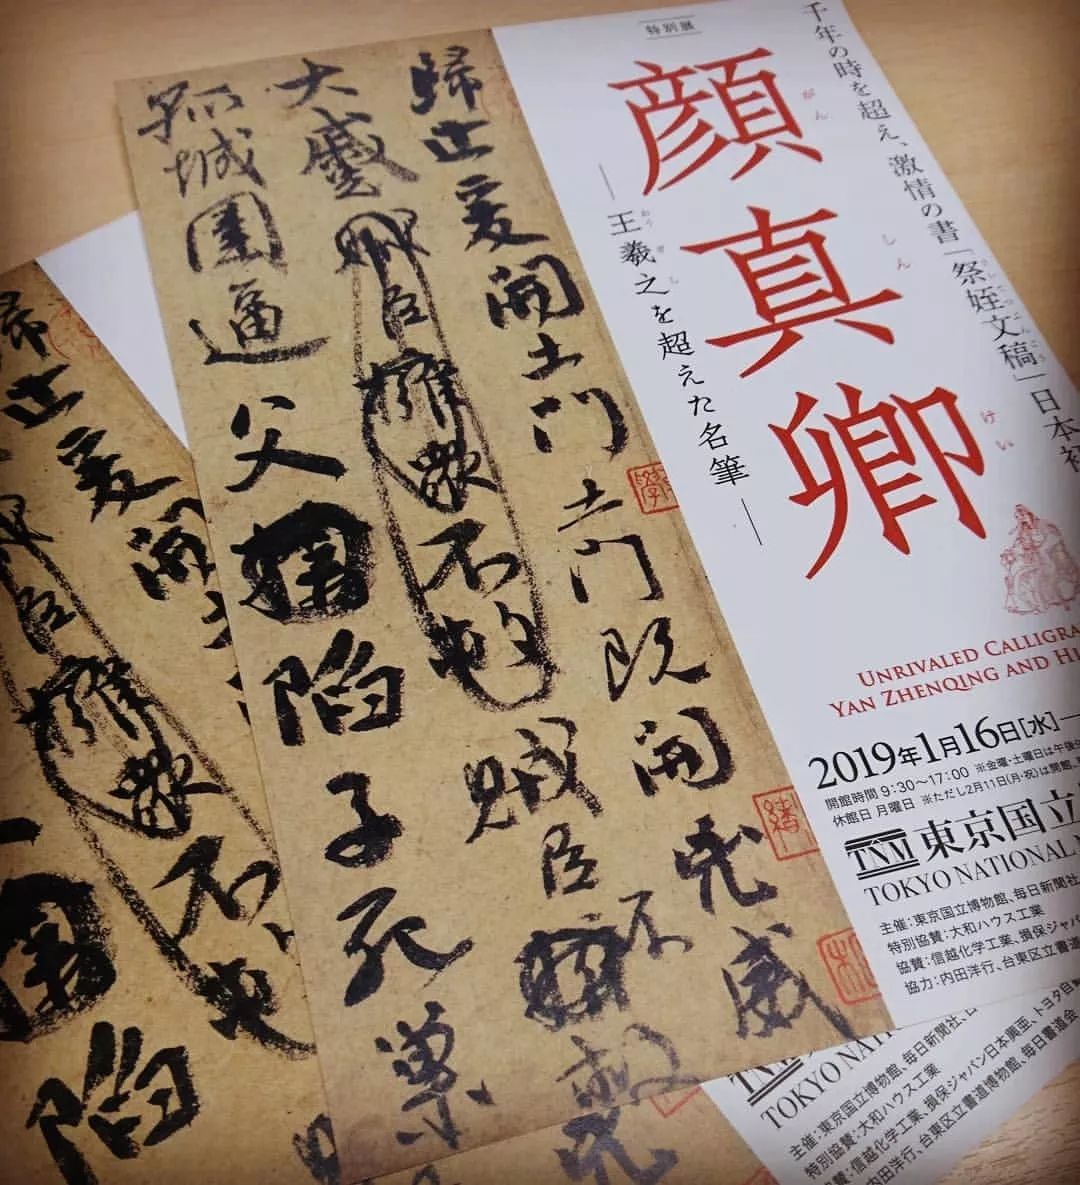 特別展
顔真卿
がん しん けい
王羲之を超えた名筆
おう ぎ し
千年の時を超え、激情の書「祭姪文稿」日本初
さい てつ ぶん こう
UNRIVALED CALLIGRA
YAN ZHENQING AND HI
2019年1月16日[水]—
開館時間 9:30～17:00 ※金曜・土曜日は午後
休館日 月曜日 ※ただし2月11日(月・祝)は開館、
TNM 東京国立
TOKYO NATIONAL
主催：東京国立博物館、毎日新聞社
特別協賛：大和ハウス工業
協賛：信越化学工業、損保ジャパ
協力：内田洋行、台東区立書
歸止爰開土門土門既開兇威
大蹙
賊臣不救
孤城圍逼父陷子死巢
擁衆不
TOKYO NATIONAL
主催：東京国立博物館、毎日新聞社、
特別協賛：大和ハウス工業
協賛：信越化学工業、損保ジャパン日本興亜、トヨタ自
内田洋行、台東区立書道博物館、毎日書道会
歸止爰開
擁衆不
陷